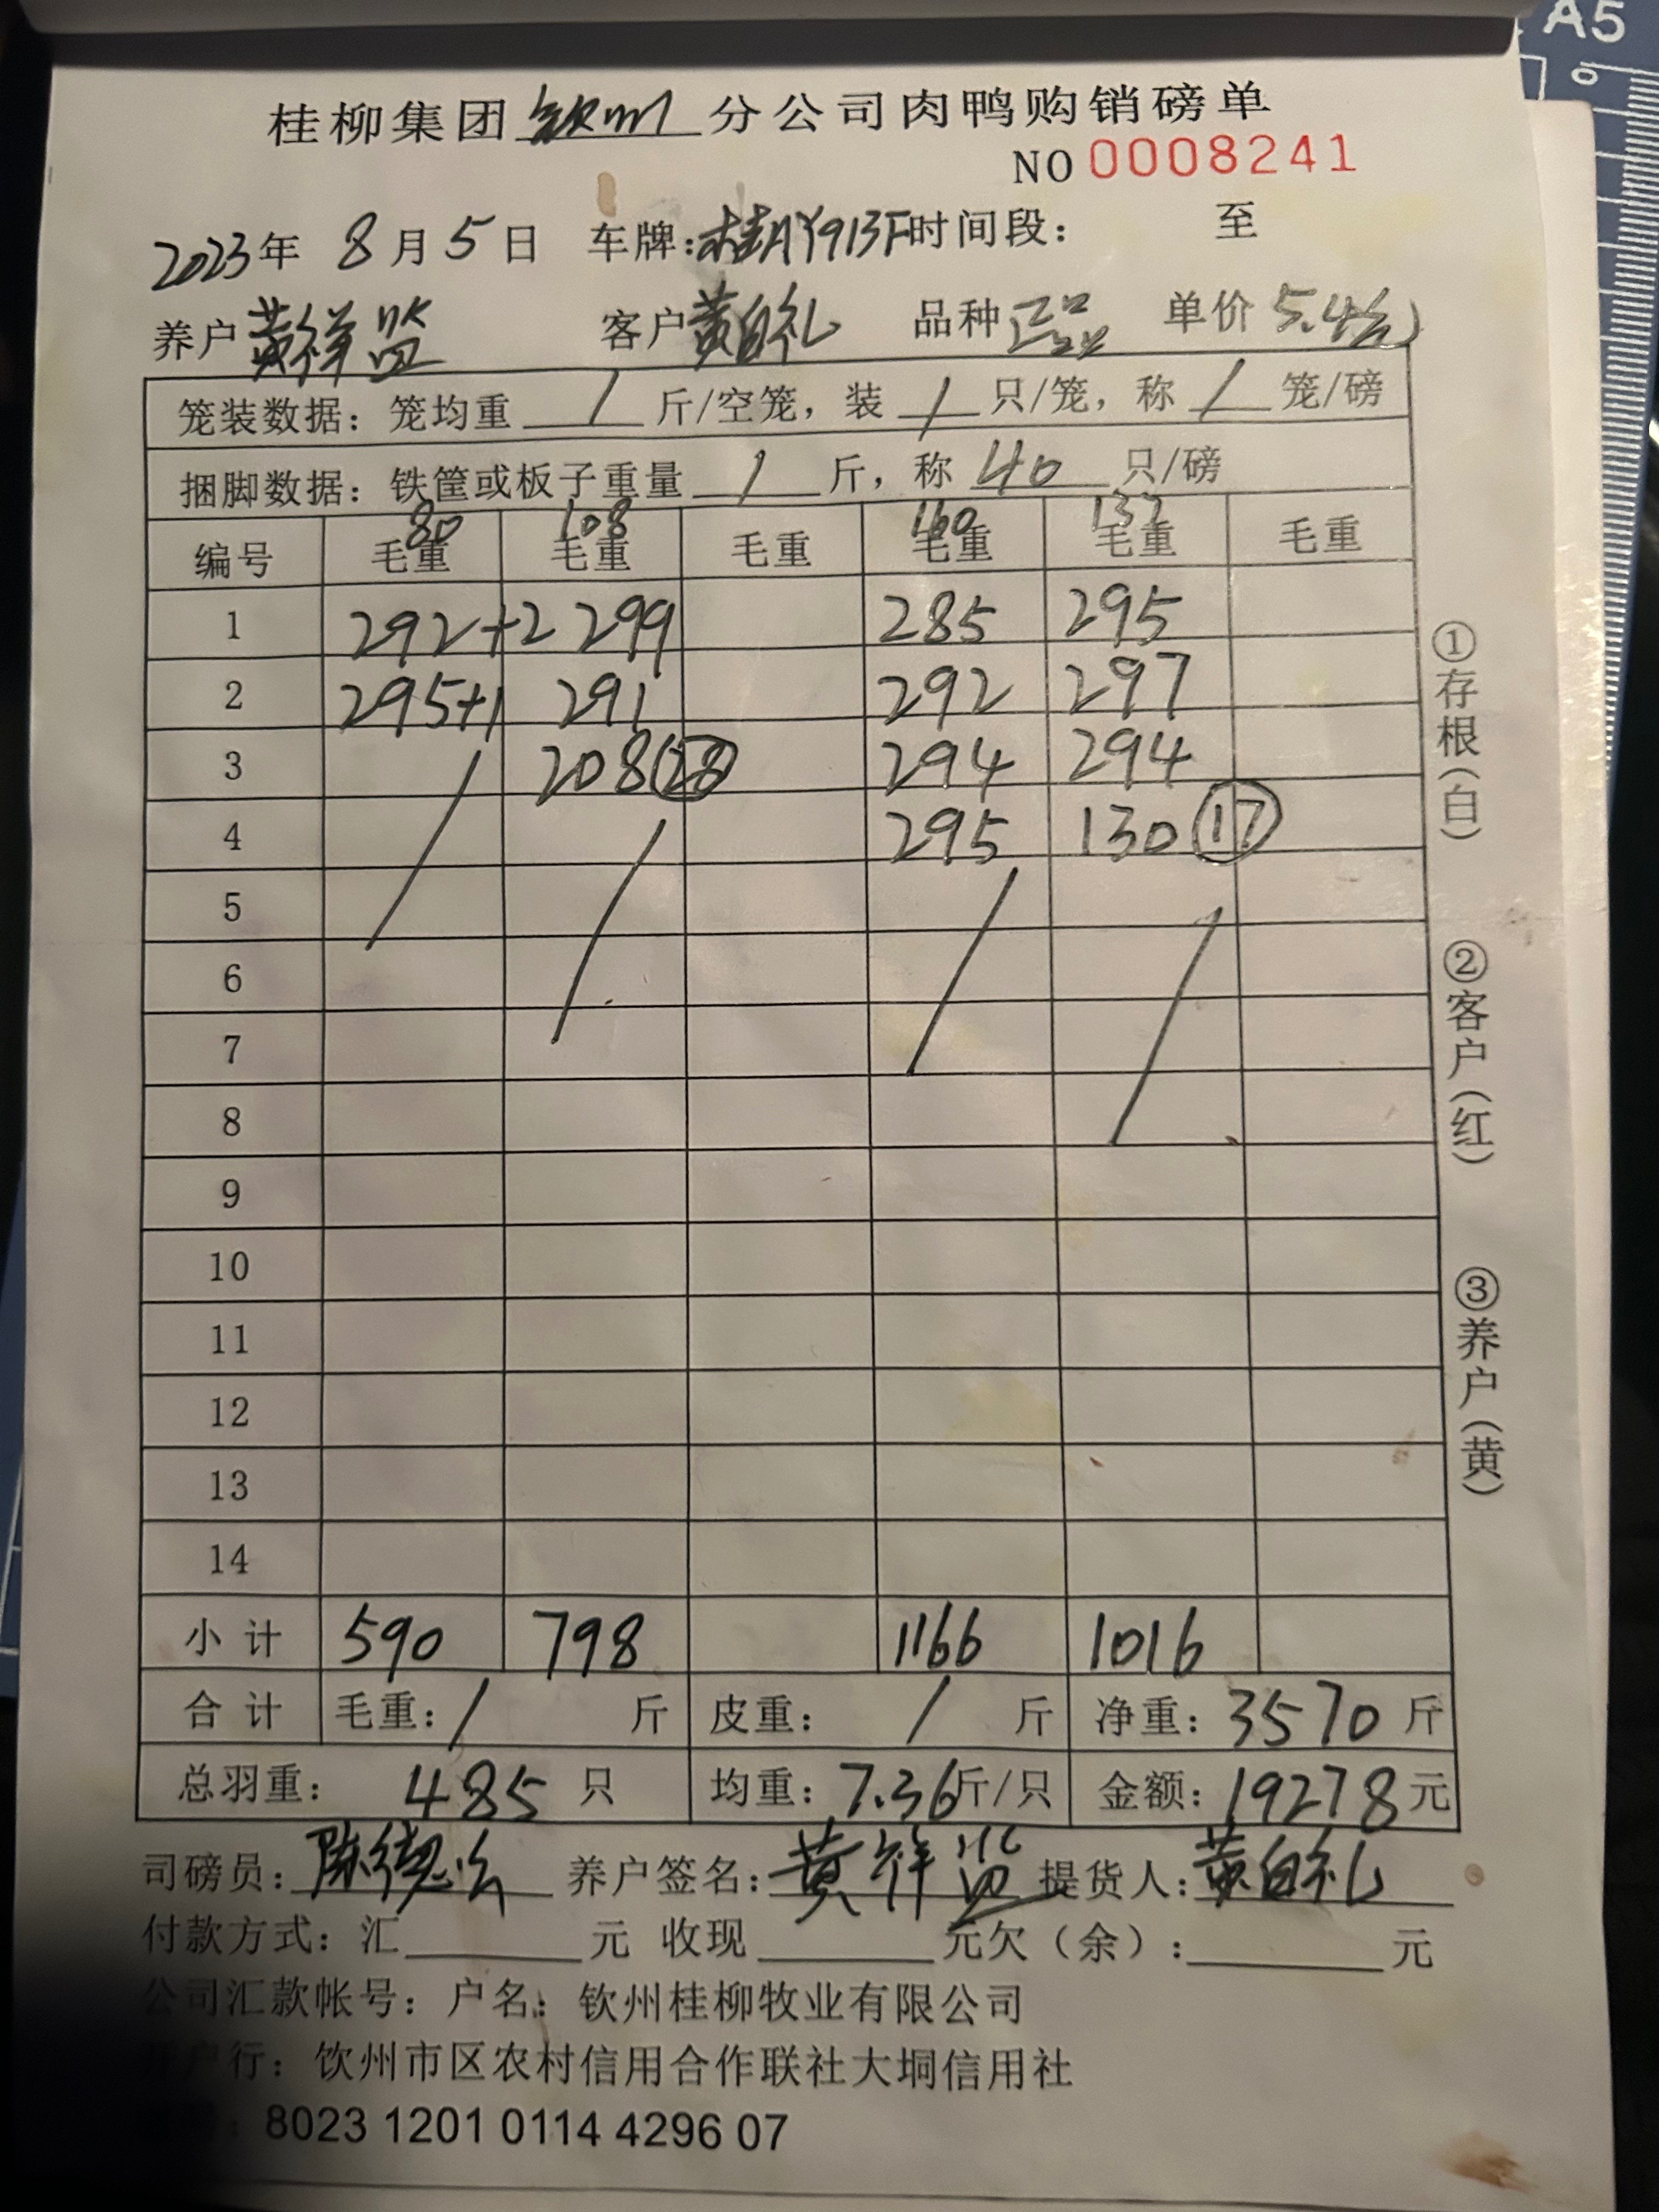 A5
桂柳集团 钦州 分公司肉鸭购销磅单
NO 0008241
2023年 8月5日 车牌:桂AY913F时间段: 至
养户 黄祥 客户 黄自礼 品种 正品 单价 5.4元
笼装数据: 笼均重 / 斤/空笼, 装 / 只/笼, 称 / 笼/磅
捆脚数据: 铁筐或板子重量 / 斤, 称 40 只/磅
80 108 160 137
编号 毛重 毛重 毛重 毛重 毛重 毛重
1 292+2 299 285 295
2 295+1 291 292 297
3 208(28) 294 294
4 295 130 (17)
5
6
7
8
9
10
11
12
13
14
小计 590 798 1166 1016
合计 毛重: / 斤 皮重: / 斤 净重: 3570 斤
总羽重: 485 只 均重: 7.36斤/只 金额: 19278元
司磅员: 陈德 养户签名: 黄祥 提货人: 黄自礼
付款方式: 汇 元 收现 元欠(余): 元
公司汇款帐号: 户名: 钦州桂柳牧业有限公司
开户行: 钦州市区农村信用合作联社大垌信用社
: 8023 1201 0114 4296 07
①存根(白)
②客户(红)
③养户(黄)